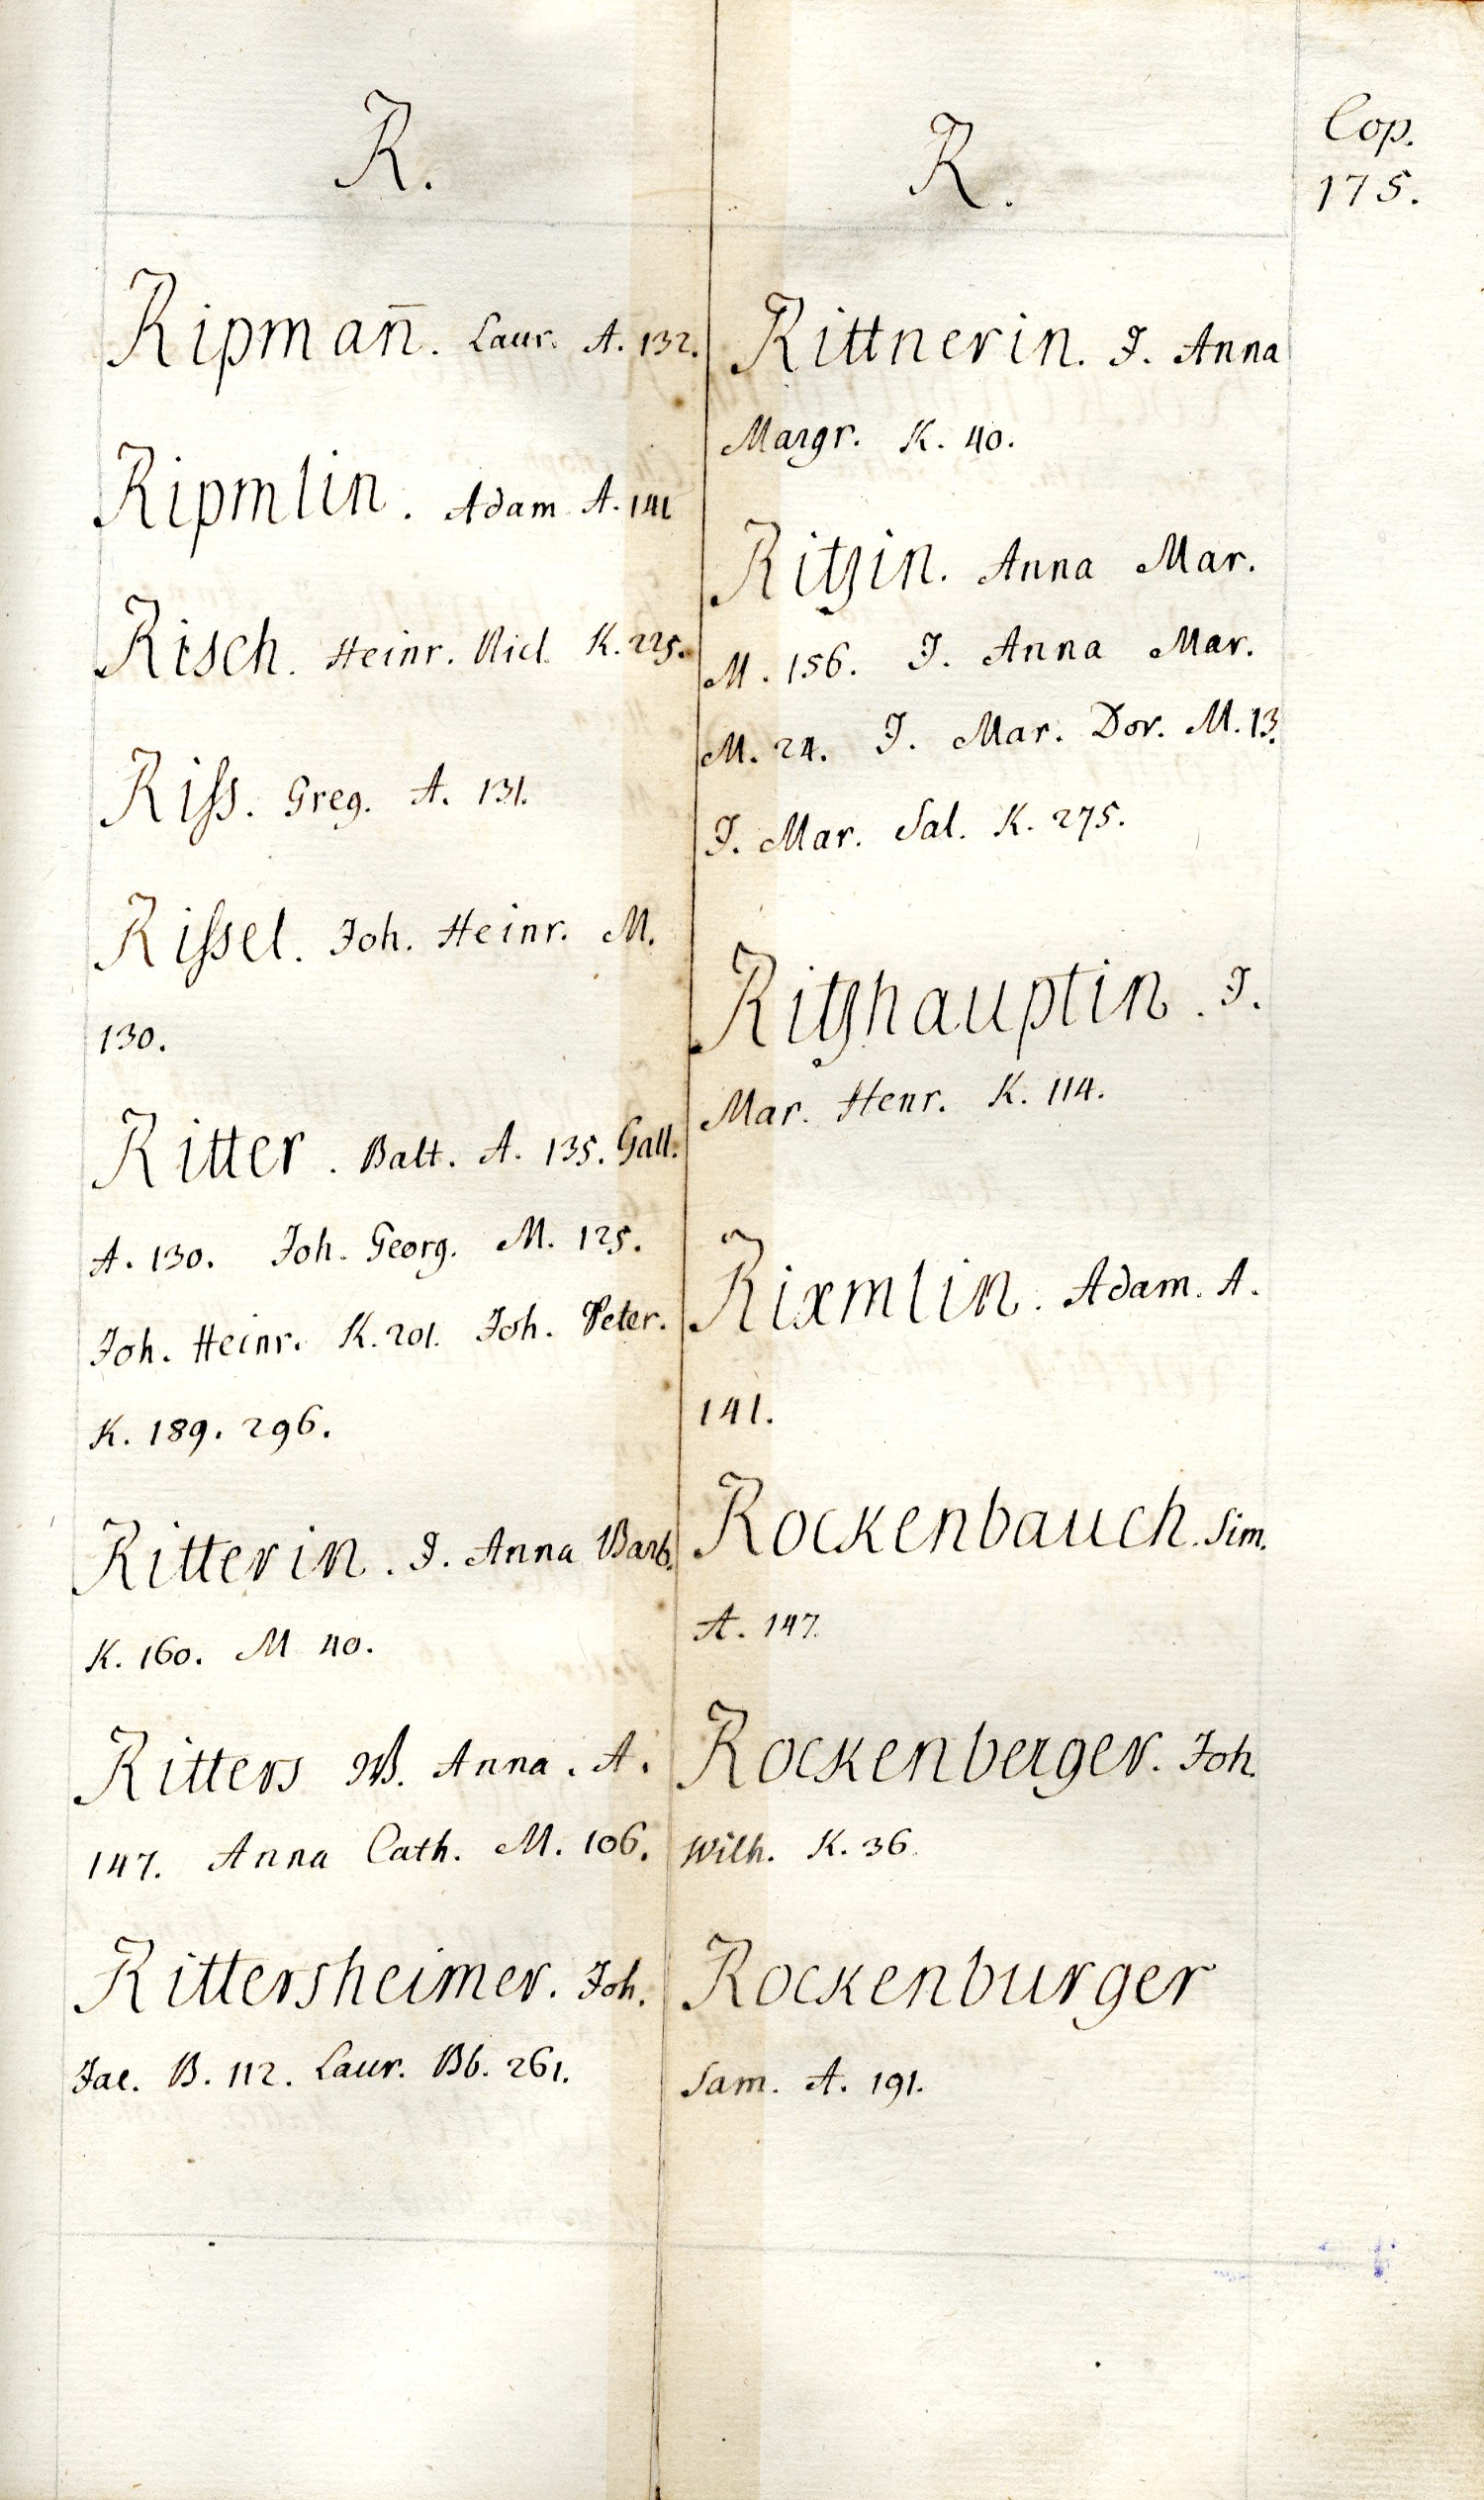 R.
Ripman̄. Laur. A. 132.
Ripmlin. Adam A. 141
Risch. Heinr. Nicl. K. 225.
Riſs. Greg. A. 131.
Riſsel. Joh. Heinr. M.
130.
Ritter. Balt. A. 135. Gall.
A. 130. Joh. Georg. M. 125.
Joh. Heinr. K. 201. Joh. Peter.
K. 189. 296.
Ritterin. J. Anna Barb.
K. 160. M 40.
Ritters W. Anna. A.
147. Anna Cath. M. 106.
Rittersheimer. Joh.
Jac. B. 112. Laur. Bb. 261.
R.
Rittnerin. J. Anna
Margr. K. 40.
Ritzin. Anna Mar.
M. 156. J. Anna Mar.
M. 24. J. Mar. Dor. M. 13.
J. Mar. Sal. K. 275.
Ritzhauptin. J.
Mar. Henr. K. 114.
Rixmlin. Adam. A.
141.
Rockenbauch. Sim.
A. 147.
Rockenberger. Joh.
Wilh. K. 36.
Rockenburger
Sam. A. 191.
Cop.
175.